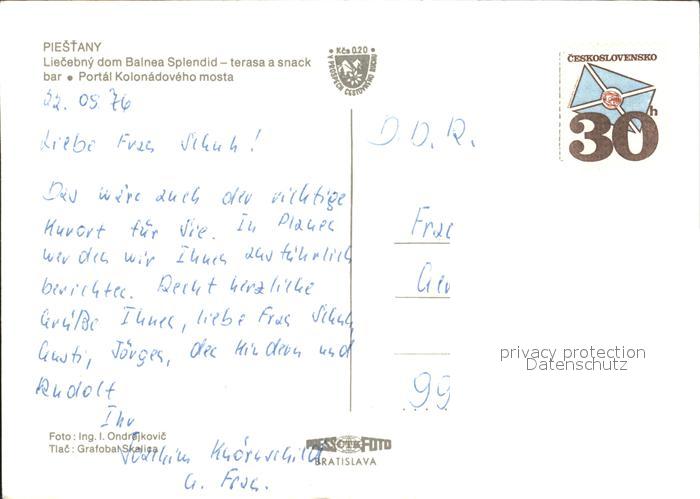 PIEŠŤANY
Liečebný dom Balnea Splendid – terasa a snack
bar • Portál Kolonádového mosta
• Kčs 0.20 •
V PROSPECH CESTOVNÉHO RUCHU
ČESKOSLOVENSKO
30h
22. 09. 76
Liebe Frau Schuh!
D. D. R.
Das wäre auch der richtige
Kurort für Sie. In Plauen
werden wir Ihnen ausführlich
berichten. Recht herzliche
Grüße Ihnen, liebe Frau Schuh,
Gusti, Jürgen, den Kindern und
Rudolf
Ihr
Joachim
u. Frau.
Frau
Ger
99
privacy protection
Datenschutz
Foto: Ing. I. Ondrejkovič
Tlač: Grafobal Skalica
PRESSFOTO
BRATISLAVA